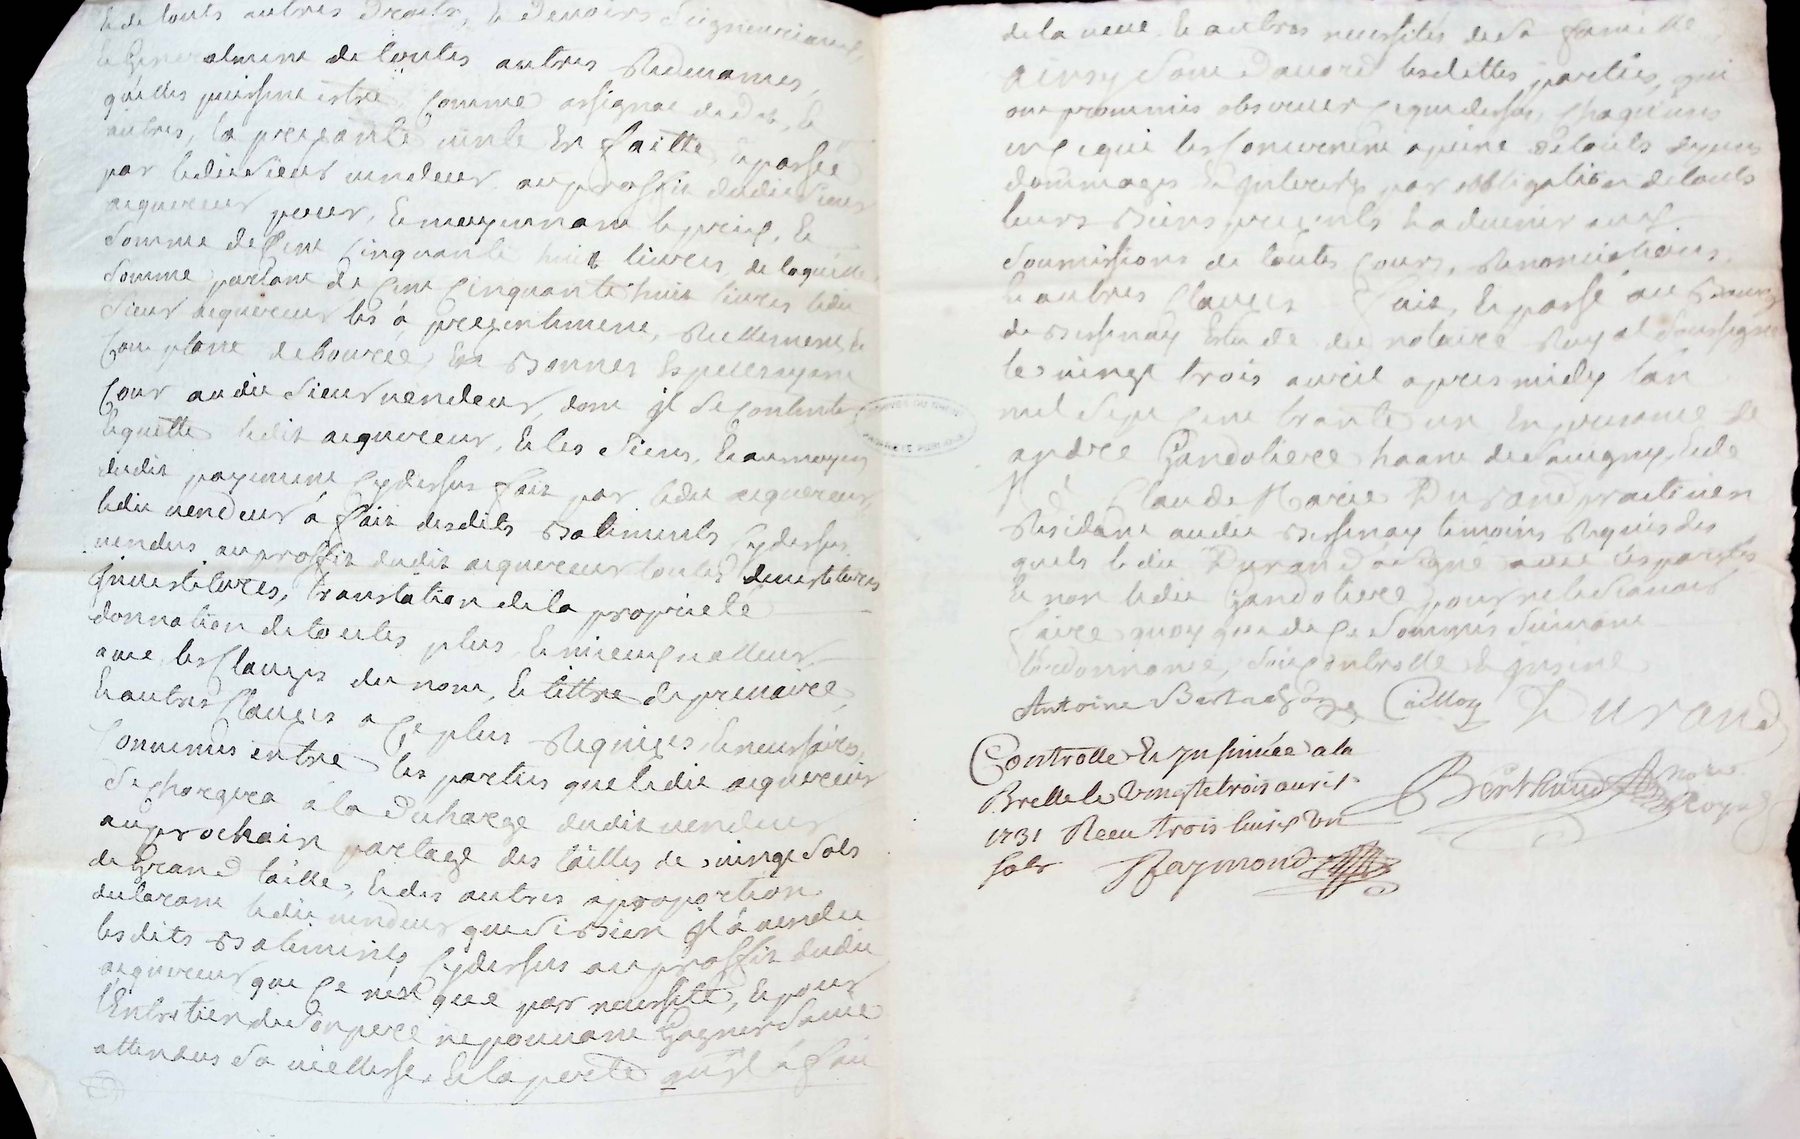 et de touts autres droits, et devoirs seigneuriaux,
et generalement de toutes autres redevances,
quelles puissent estre, comme assignac de dot, et
autres, la presante vente est faitte, et passée
par ledit sieur vendeur au proffit dudit sieur
aquereur pour, et moyennant le prix, et
somme de cent cinquante huit livres, de laquelle
somme partant de cent cinquante huit livres ledit
sieur aquereur les a presentement, reellement, et
comptant debource, en bonnes especes ayant
cour audit sieur vendeur, dont jl se contente
et quitte ledit aquereur, et les siens, et au moyen
dudit payement cydessus fait par ledit aquereur,
ledit vendeur à fait desdits batiments cydessus
vendus au proffit dudit aquereur toutes devestitures
jnvestitures, translation de la proprieté
donnation de toutes plus et mieux valleur
avec les clauses du nom, et tittre de precaire,
et autres clauses a ce plus requises, et necessaires,
convenus entre les parties que ledit aquereur
se chargera à la decharge dudit vendeur
au prochain partage des tailles de vingt sols
de grand taille, et des autres a proportion
declarant ledit vendeur que si bien jl à vendu
lesdits batiments cydessus au proffit dudit
aquereur que ce n'est que par necessité, et pour
l'entretien de son pere ne pouvant gagner sa vie
attendus sa viellesse, et la perte qu'jl à fait
de la veue et autres necessités de sa famille
ainsy sont d'accord lesdittes parties, qui
ont prommis observer ce que dessus, chaqu'unes
en ce qui les concernent a peine de touts depens
dommages et jnterests par obbligation de touts
leurs biens presents et a devenir aux
soumissions de toutes cours, renonciations,
et autres clauses fait, et passé au bourg
de Bessenay estude du notaire royal soussigné
le vingt trois avril apres midy l'an
mil sept cent trante un en presance de
andre Gandoliere de Savigny, et de
Me Claude Marie Durand praticien
residant audit Bessenay temoins requis des
quels ledit Durand à signé avec les parties
et non ledit Gandoliere pour ne le sçavoir
faire quoy que de ce sommés suivant
l'ordonnance, soit controllé et jnsiné
Antoine Caillon Durand
Controllé et jnsinuée a la
Brelle le vingt et trois avril
1731 Receu trois livres un
sols Raymond
Berthaud nore royal